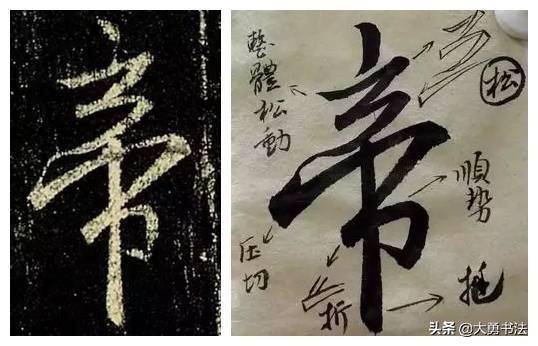 帝
帝
整體松動
松
順势
压切
折
挺
头条 @大勇书法